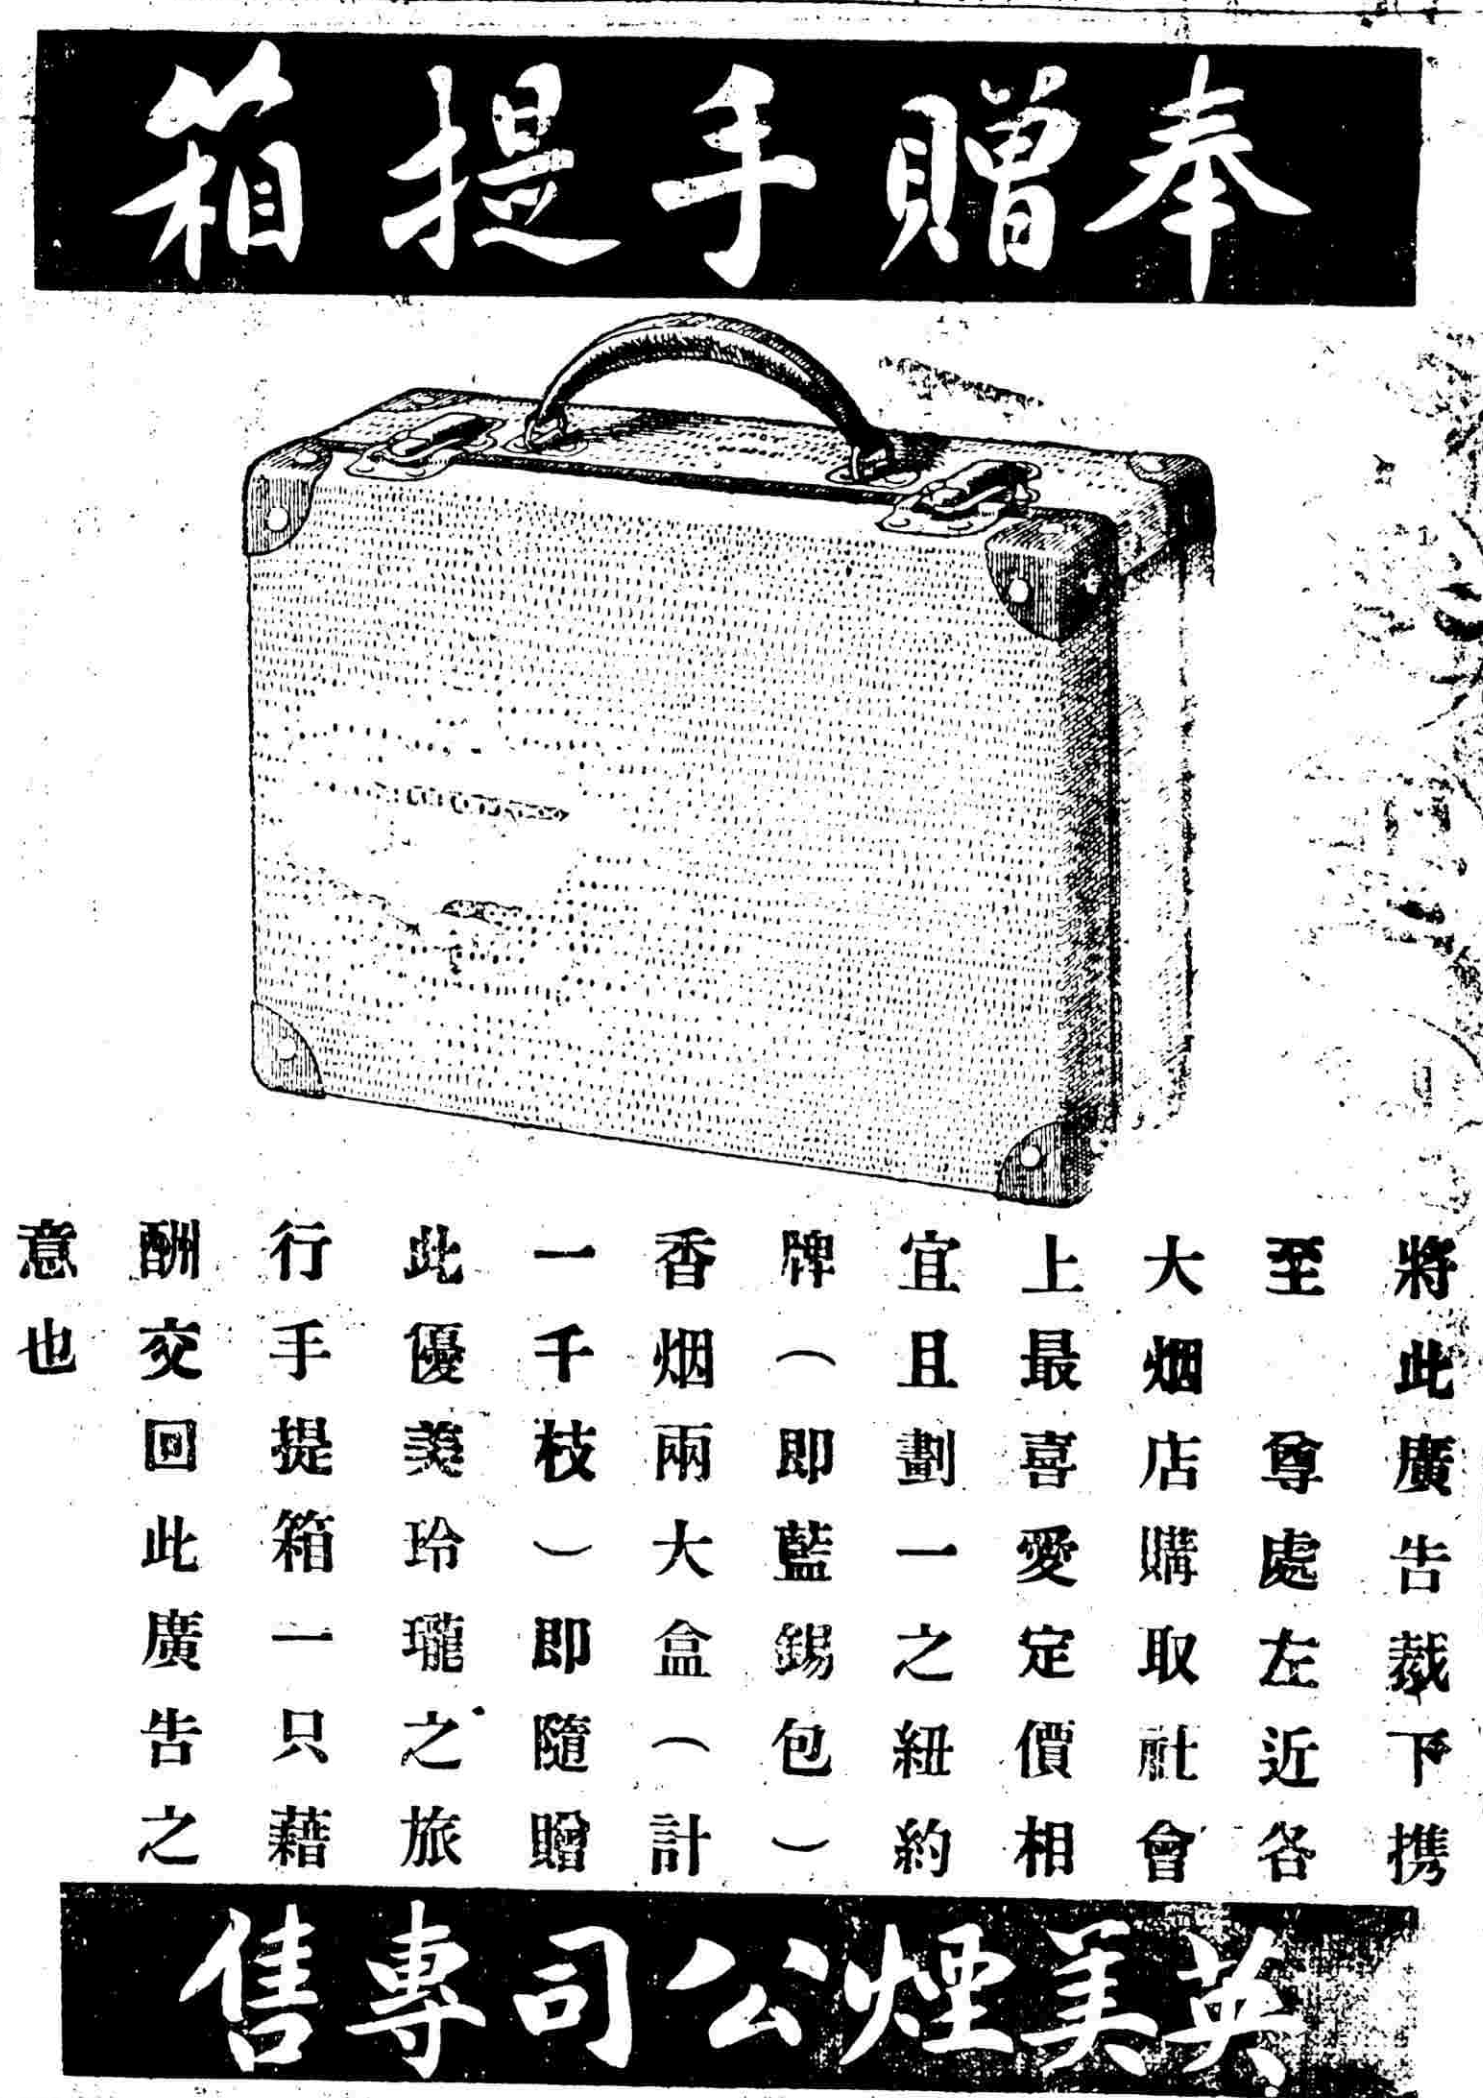 奉贈手提箱
將此廣告裁下携
至　尊處左近各
大烟店購取社會
上最喜愛定價相
宜且劃一之紐約
牌（即藍錫包）
香烟兩大盒（計
一千枝）即隨贈
此優美玲瓏之旅
行手提箱一只藉
酬交回此廣告之
意也
英美煙公司專售